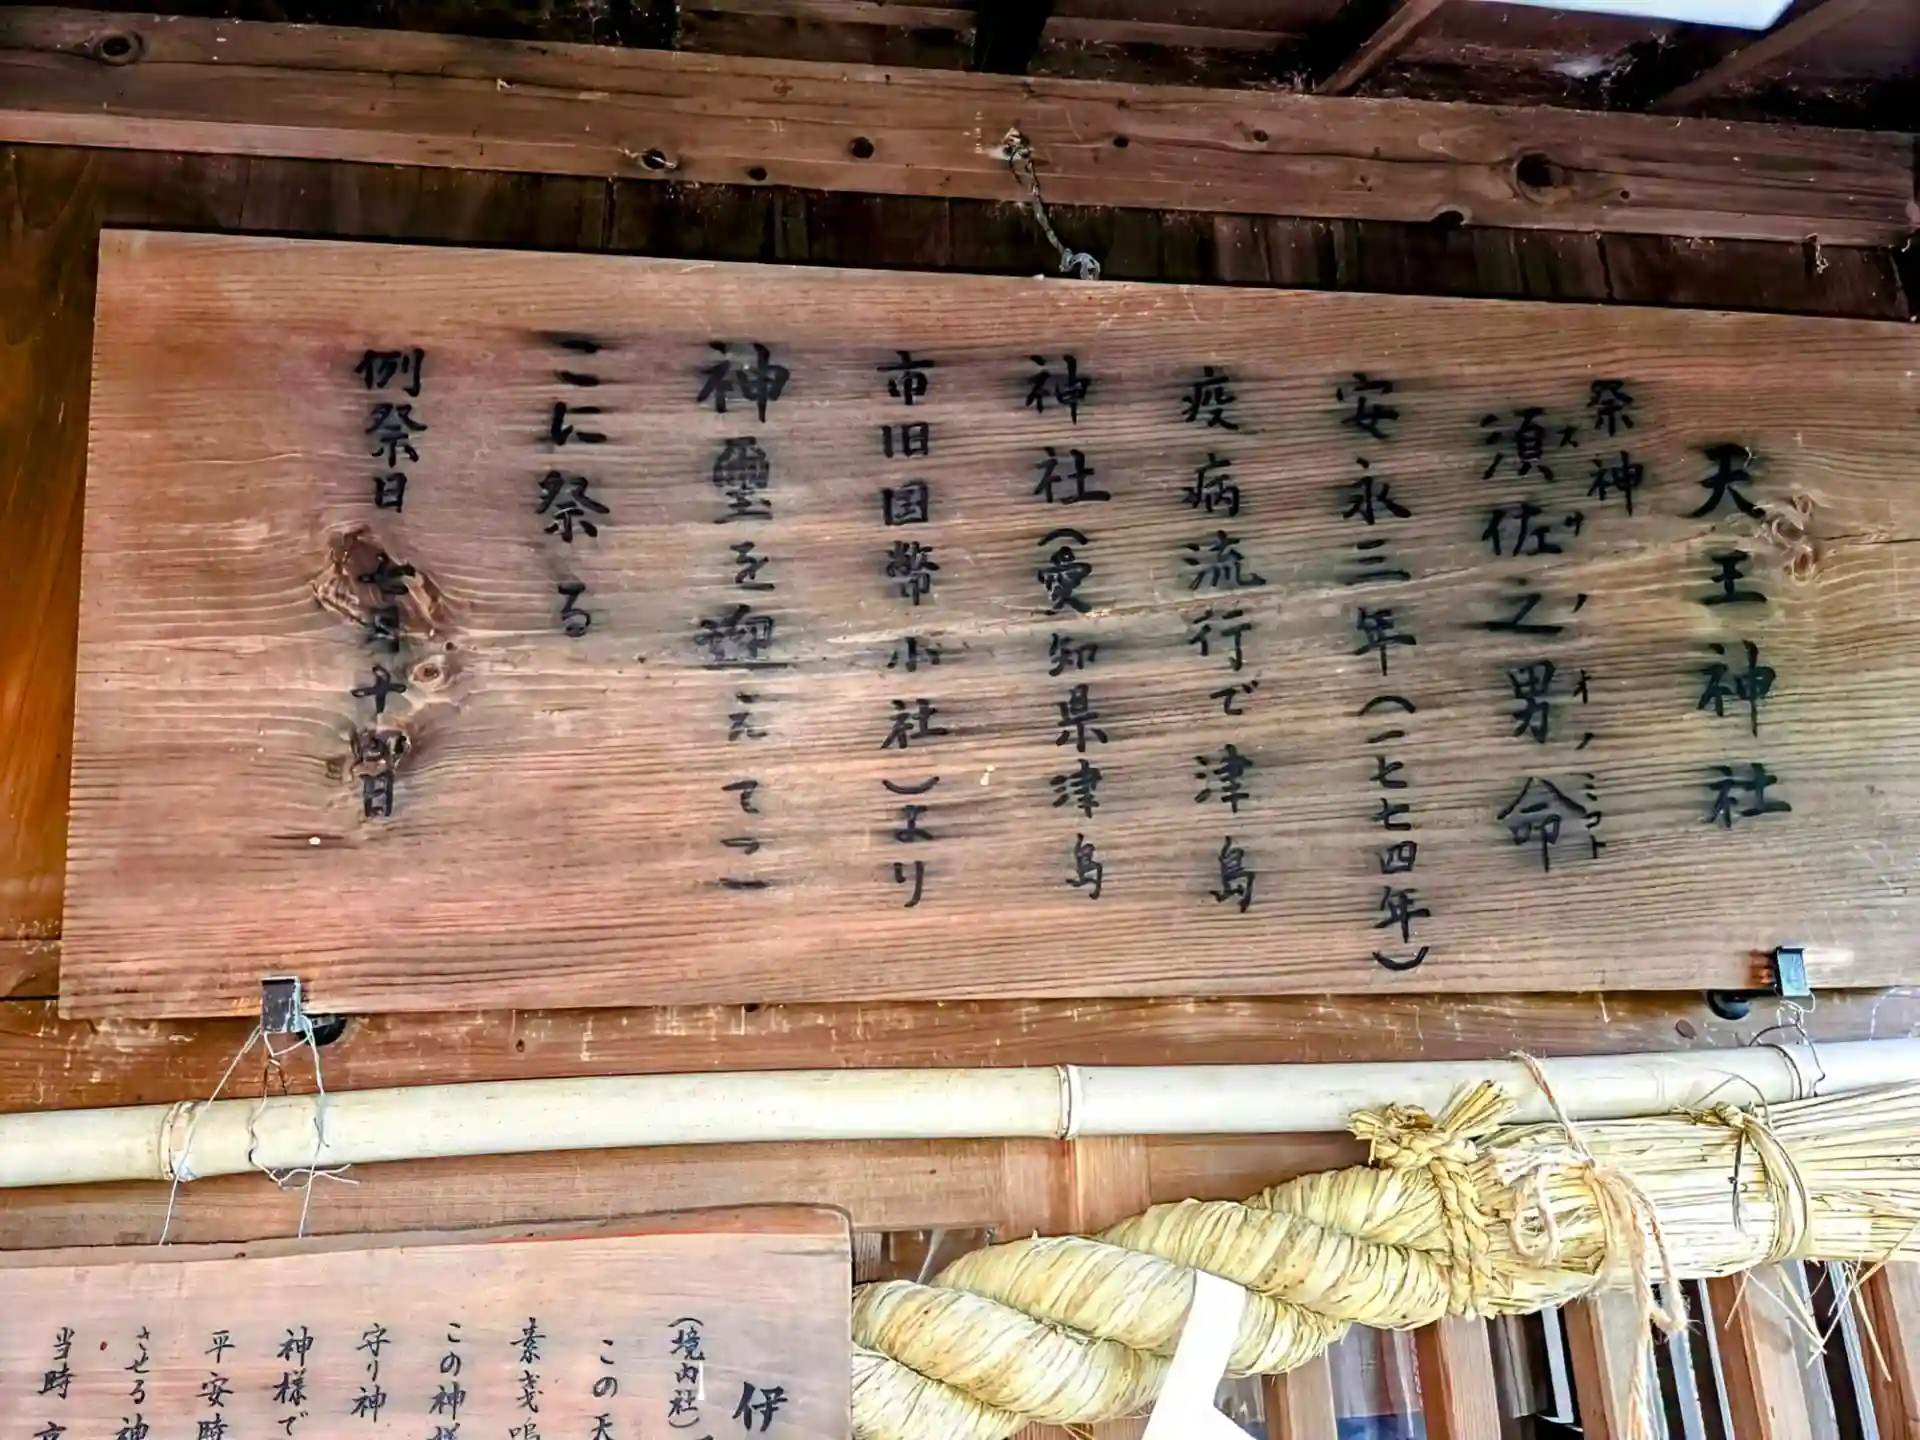 天王神社
祭神
須佐之男命
スサノオノミコト
安永三年(一七七四年)
疫病流行で津島
神社(愛知県津島
市旧国幣小社)より
神璽を迎えてこ
こに祭る
例祭日 七月十四日
伊
(境内社)
この天
素戔嗚
この神様
守り神
神様で
平安時
させる神
当時京